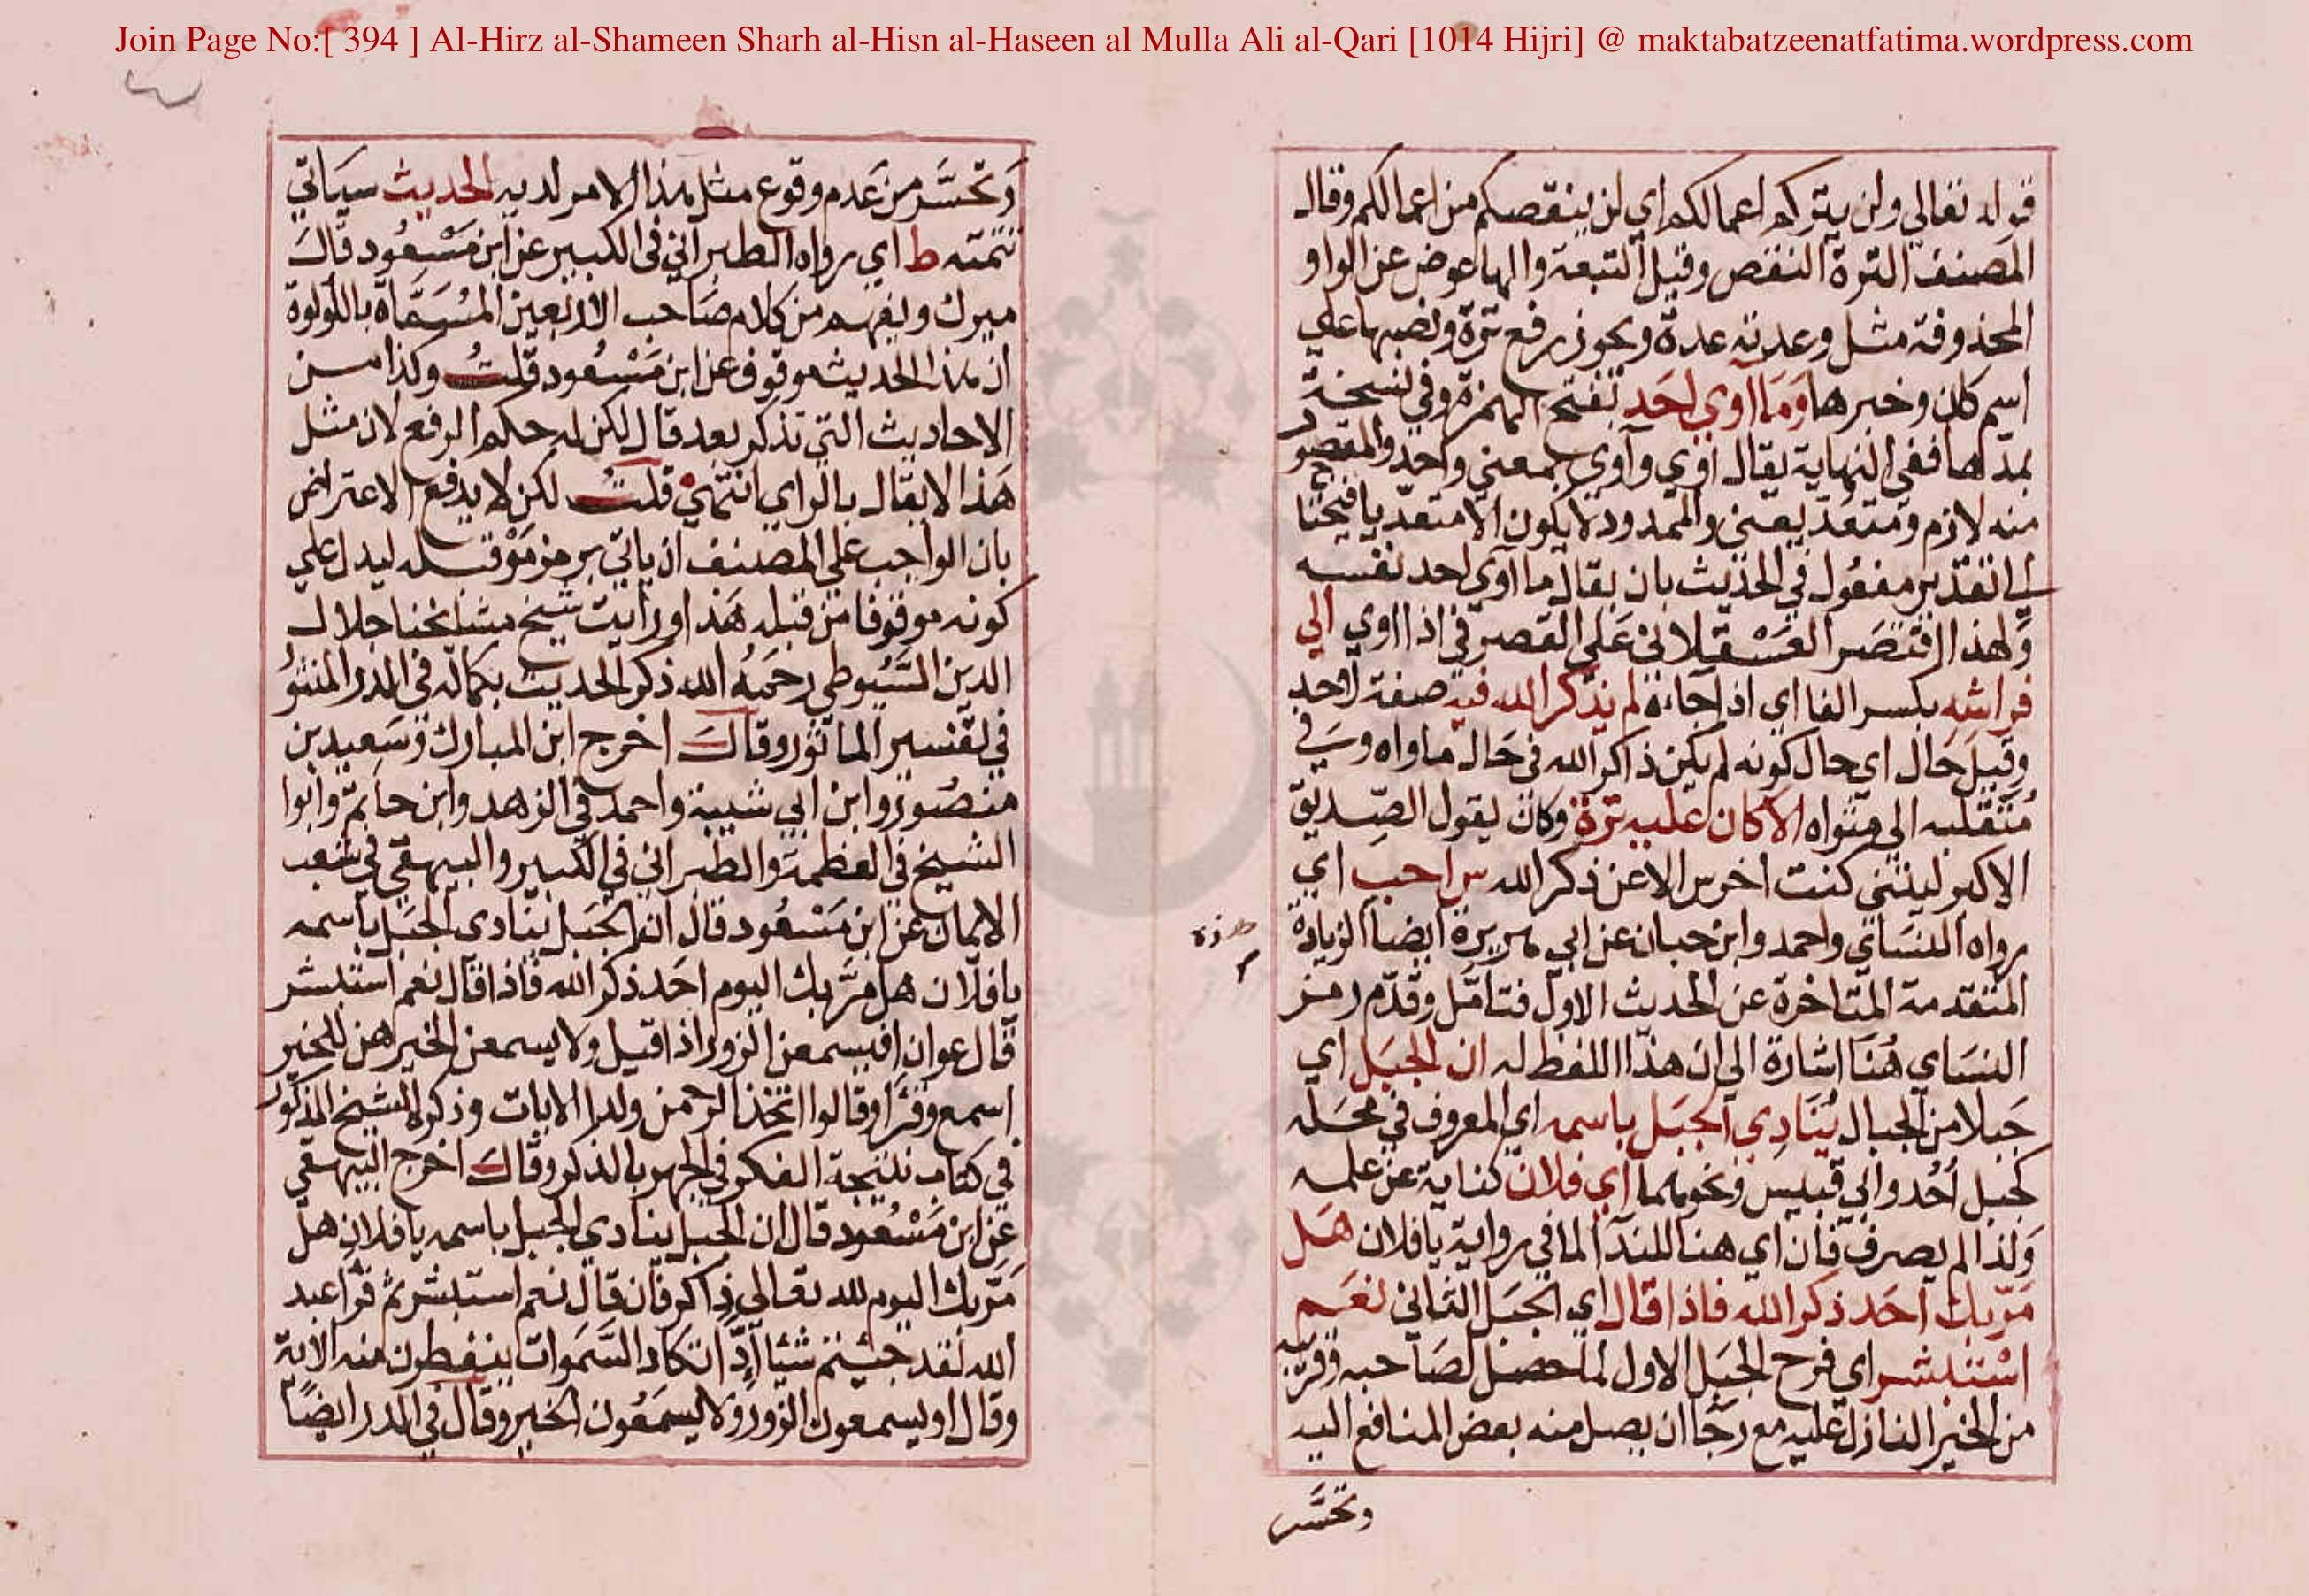 Join Page No:[ 394 ] Al-Hirz al-Shameen Sharh al-Hisn al-Haseen al Mulla Ali al-Qari [1014 Hijri] @ maktabatzeenatfatima.wordpress.com
قوله تعالي ولن يتركم اعمالكم اي لن ينقصكم من اعمالكم وقال
المصنف الترة النقص وقيل التبعة والها عوض عن الواو
المحذوفة مثل وعدته عدة ويجوز رفع ترة ونصبها علي
اسم كان وخبرها وَمَا اوي احَد بفتح الهمزة وفي نسخة
بمدها ففي النهاية يقال اوي وآوي بمعني واحد والمقصور
منه لازم ومتعد يعني والممدود لا يكون الا متعديا فيحتا
ج الي تقدير مفعول في الحديث بان يقال ما آوي احد نفسه
ولهذا اقتصَر العَسْقلاني عَلي القصر في اذا اوي الي
فراشه بكسر الفا اي اذا جاءه لم يذكر الله فيه صفة لاحد
وقيل حال اي حال كونه لم يكن ذاكر الله في حَال ماواه وسَي في
مُتقلبه الي مثواه الا كان عليه ترة وكان يقول الصِّديق
الاكبر ليتني كنت اخرس الا عن ذكر الله س احب اي
رواه النسَاي واحمد وابن حبان عن ابي هريرة ايضا الزيادة
هذه
المتقدمة المتاخرة عن الحديث الاول فتامّل وقدّم رمز
النسَاي هُنا اشارة الي ان هذا اللفظ له ان الجبَل اي
جَبلا من الجبال يُنَادِي الجبَل باسمه اي المعروف في محَله
كجبل اُحُد وابي قبيس ونحوهما اي فلان كناية عن علمه
وَلذا لم يصرف فان اي هنا للندا لما في رواية يا فلان هَل
مَرّ بك احَد ذكر الله فاذا قال اي الجبَل الثاني نعَم
اسْتبشر اي فرح الجبَل الاول لما حصل لصَاحبه وقرّبه
من الخير النازل عليه مع رجَا ان يصل منه بعض المنافع اليه
وتحسَّر
وَتَحسَّر من عَدم وقوع مثل هذا الامر لديه الحديث سيَاتي
تتمته ط اي رواه الطبراني في الكبير عن ابن مَسْعُود قالَ
ميرك ويفهم من كلام صَاحب الاربعين المُسَمَّاة باللولوة
ان هذا الحديث موقوف عن ابن مَسْعُود قلتُ وكذا من
الاحاديث التي تذكر بعد قال لكن له حكم الرفع لان مثل
هَذا لا يقال بالراي انتهي قلتُ لكن لا يدفع الاعتراض
بان الواجب علي المصنف ان ياتي برمز مَوْ قبله ليدل علي
كونه موقوفا من قبله هَذا ورايت شيخ مشايخنا جلال
الدين السّيُوطي رحمَهُ الله ذكر الحديث بكماله في الدر المنثوُ
في تفسير الماثور وقالَ اخرج ابن المبارك وسَعيد بن
منصُور وابن ابي شيبة واحمد في الزهد وابن حاتم وابوا
الشيخ في العظمة والطبراني في الكبير والبيهقي في شعب
الايمان عن ابن مَسْعُود قال ان الجبَل ينادي الجبَل باسمه
يا فلان هل مَرّ بك اليوم احَد ذكر الله فاذا قال نعم استبشر
قال عوان افيسمعن الزور اذا قيل ولا يسمعن الخير هن للخير
اسمع وقرَا وقالوا اتخذ الرحمن ولدا الايات وذكر الشيخ المذكور
في كتاب نتيجة الفكر في الجهر بالذكر وقالَ اخرج البيهقي
عن ابن مَسْعُود قال ان الجبل ينادي الجبل باسمه يا فلان هل
مَرّ بك اليوم لله تعالي ذاكر فان قال نعم استبشر ثم قرا عبد
الله لقد جئتم شئا اِدّا تكاد السَّموات يتفطرن منه الاية
وقال اويسمعون الزور وَلا يسمَعُون الخير وقال في الدر ايضًا